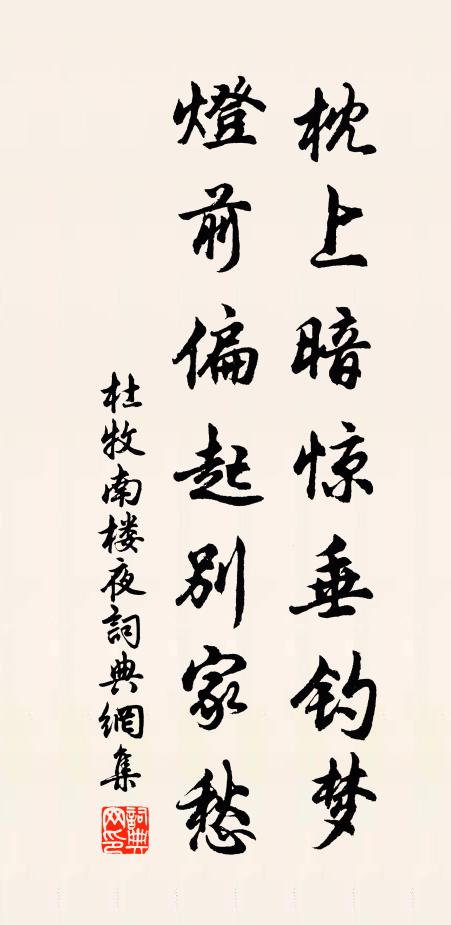 枕上暗惊垂钓梦
燈前偏起别家愁
杜牧南楼夜詞典網集
詞典網印